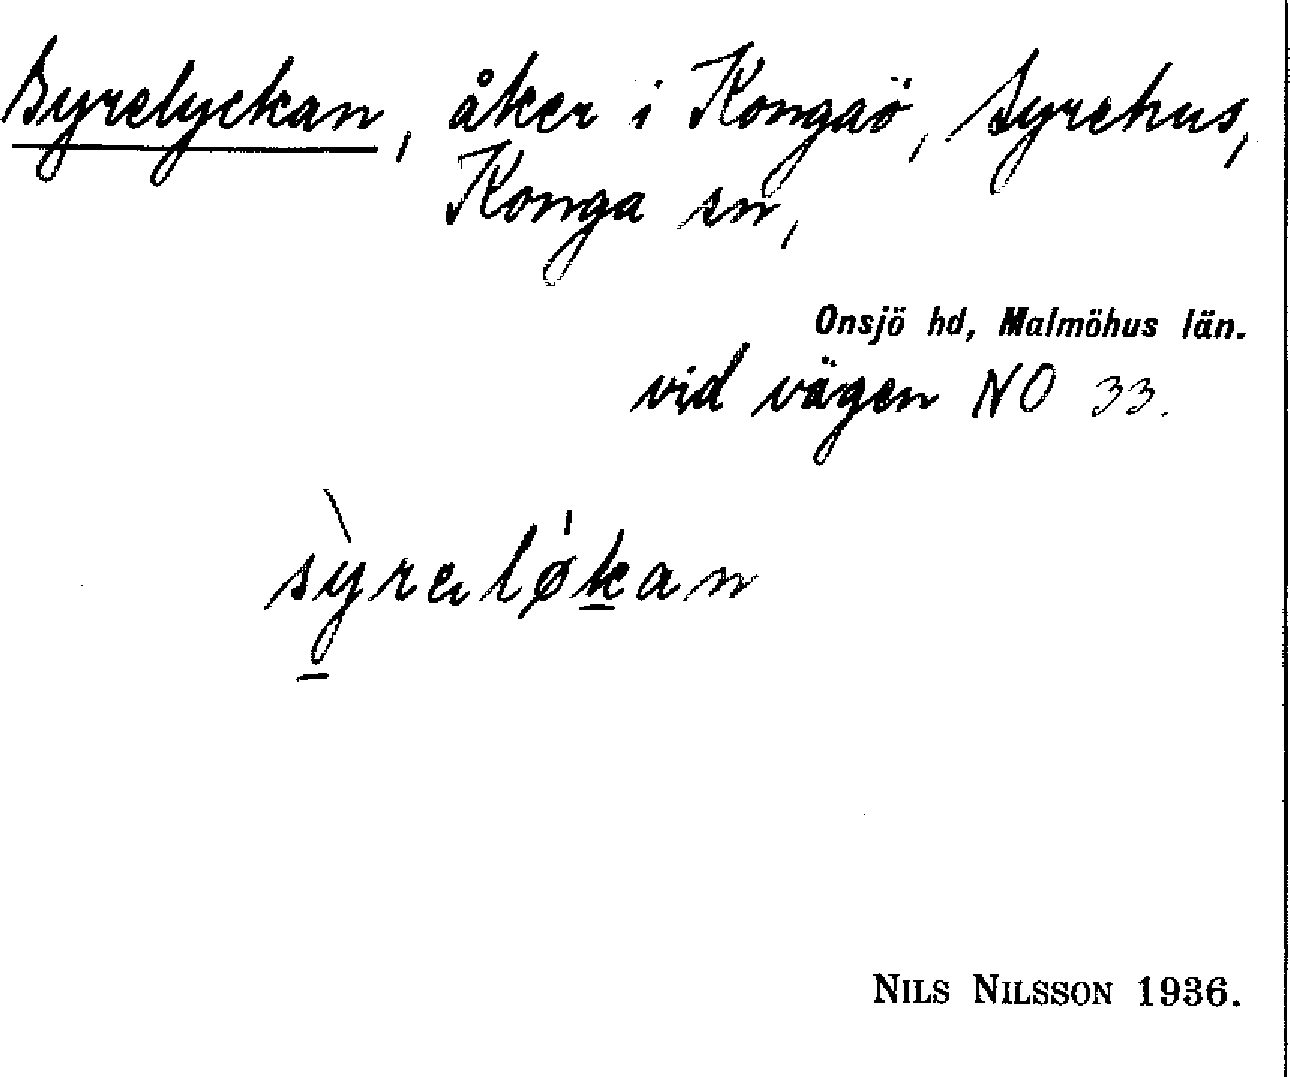 Syrelyckan, åker i Kongaö, Syrehus,
Konga sn,
Onsjö hd, Malmöhus län.
vid vägen NO 33.
sỳreløkan
NILS NILSSON 1936.